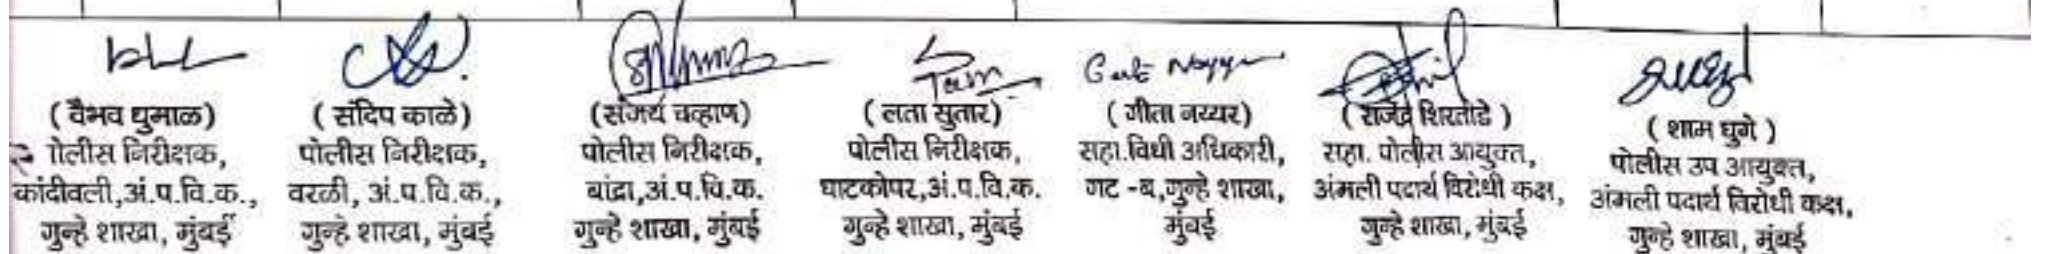 Geeta Nayyar
( वैभव धुमाळ)
पोलीस निरीक्षक,
कांदीवली,अं.प.वि.क.,
गुन्हे शाखा, मुंबई
( संदिप काळे)
पोलीस निरीक्षक,
वरळी, अं.प.वि.क.,
गुन्हे शाखा, मुंबई
(संजय चव्हाण)
पोलीस निरीक्षक,
बांद्रा,अं.प.वि.क.
गुन्हे शाखा, मुंबई
( लता सुतार)
पोलीस निरीक्षक,
घाटकोपर,अं.प.वि.क.
गुन्हे शाखा, मुंबई
( गीता नय्यर)
सहा.विधी अधिकारी,
गट -ब,गुन्हे शाखा,
मुंबई
( राजेंद्र शिरतोडे )
सहा. पोलीस आयुक्त,
अंमली पदार्थ विरोधी कक्ष,
गुन्हे शाखा, मुंबई
( शाम घुगे )
पोलीस उप आयुक्त,
अंमली पदार्थ विरोधी कक्ष,
गुन्हे शाखा, मुंबई